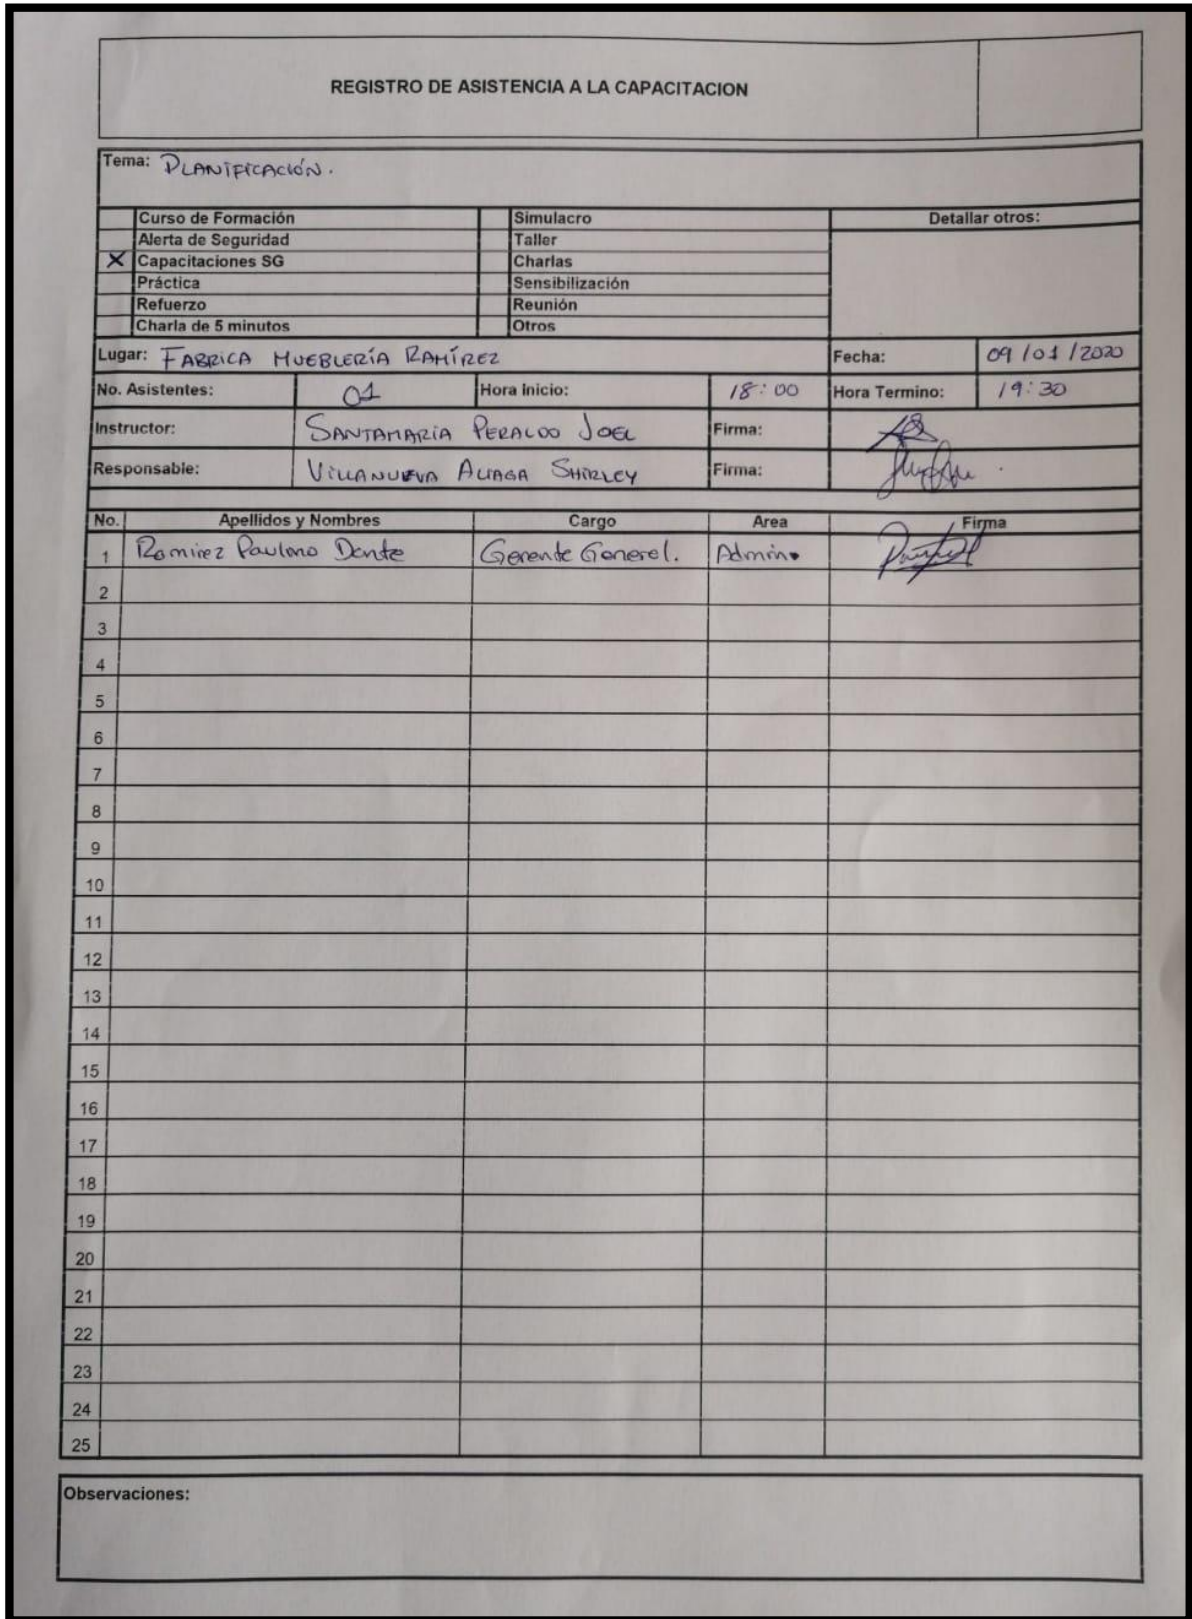 REGISTRO DE ASISTENCIA A LA CAPACITACION
Tema: PLANIFICACIÓN.
Curso de Formación Simulacro Detallar otros:
Alerta de Seguridad Taller
X Capacitaciones SG Charlas
Práctica Sensibilización
Refuerzo Reunión
Charla de 5 minutos Otros
Lugar: FABRICA MUEBLERÍA RAMÍREZ Fecha: 09/01/2020
No. Asistentes: 01 Hora Inicio: 18:00 Hora Termino: 19:30
Instructor: SANTAMARÍA PERALDO JOEL Firma:
Responsable: VILLANUEVA ALIAGA SHIRLEY Firma:
No. Apellidos y Nombres Cargo Area Firma
1 Ramirez Paulino Dante Gerente General. Admin.
2
3
4
5
6
7
8
9
10
11
12
13
14
15
16
17
18
19
20
21
22
23
24
25
Observaciones: